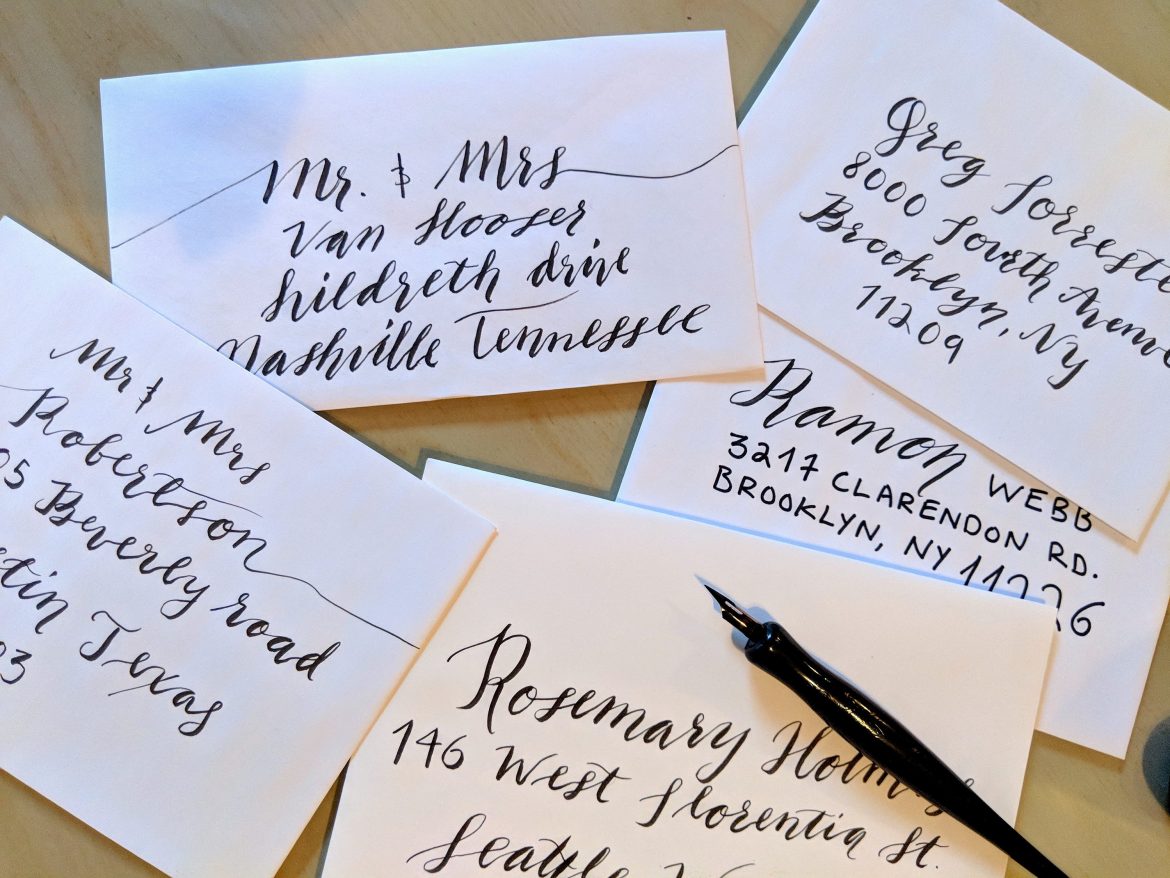 Mr. & Mrs
Van Hooser
hildreth drive
Nashville Tennessee
Greg Forreste
8000 Fourth Avenue
Brooklyn, Ny
11209
Mr & Mrs
Robertson
05 Beverly road
stin Texas
03
Ramon WEBB
3217 CLARENDON RD.
BROOKLYN, NY 11226
Rosemary Holmes
146 West Florentia St.
Seattle